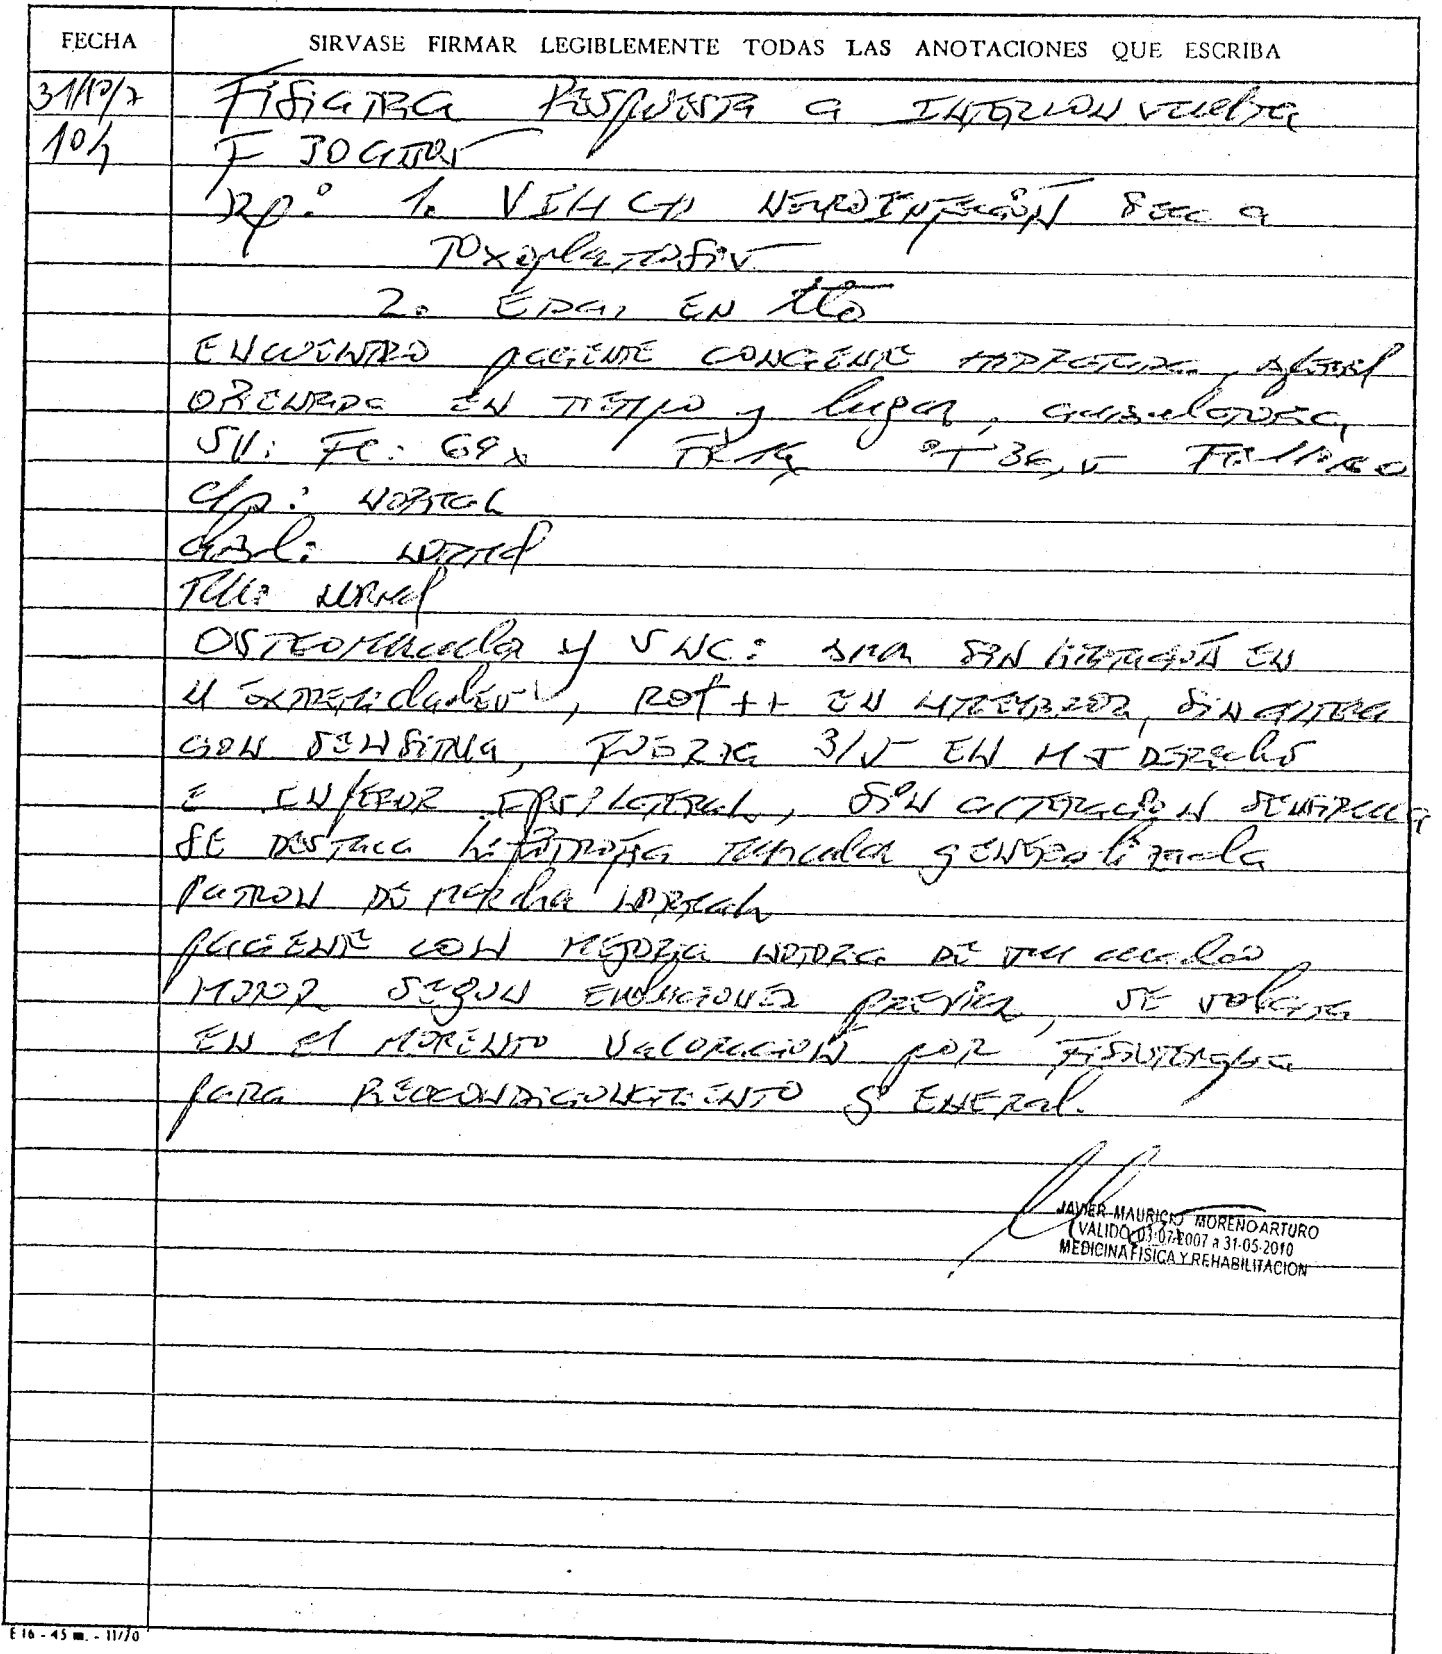 FECHA
SIRVASE FIRMAR LEGIBLEMENTE TODAS LAS ANOTACIONES QUE ESCRIBA
31/10/7 Fisiatria Respuesta a Interconsulta
10h F 30 años
1. VIH C3 Neuroinfeccion sec a
Toxoplasmosis
2. EDA, en tto
Encuentro paciente conciente hidratada, afebril
orientada en tiempo y lugar, ambulatoria,
SV: FC: 69x °T 36,5
c/p: normal
abd: normal
normal
Osteomuscular y SNC: AMA sin limitacion en
4 extremidades, ROT ++ en, sin altera
cion sensitiva, fuerza 3/5 en MS derecho
e inferior ipsilateral, sin alteracion sensitiva
se destaca hipotrofia muscular generalizada
patron de marcha normal
paciente con mejoria notoria de su cuadro
motor segun evoluciones previas, se solicita
en el momento valoracion por fisioterapia
para reacondicionamiento general.
JAVIER MAURICIO MORENO ARTURO
VALIDO 03-07-2007 a 31-05-2010
MEDICINA FISICA Y REHABILITACION
E 16 - 45 m. - 11/70